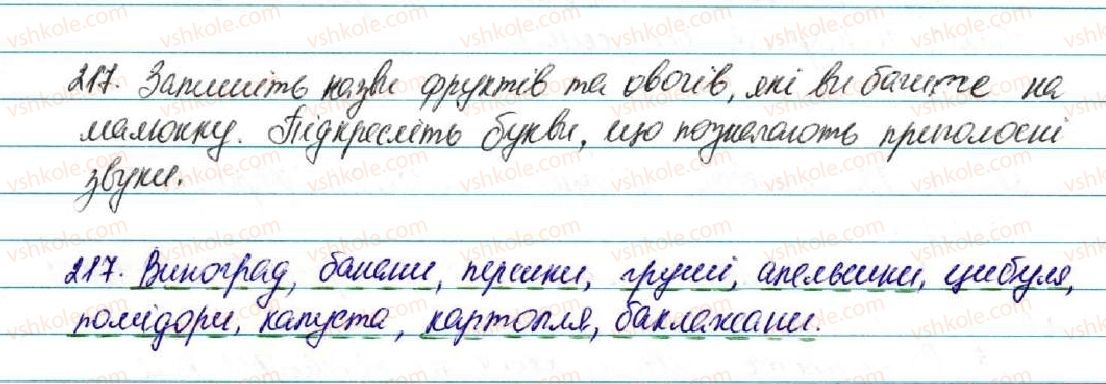 217. Запишіть назви фруктів та овочів, які ви бачите на
малюнку. Підкресліть букви, що позначають приголосні
звуки.
217. Виноград, банани, персики, груші, апельсини, цибуля,
помідори, капуста, картопля, баклажани.